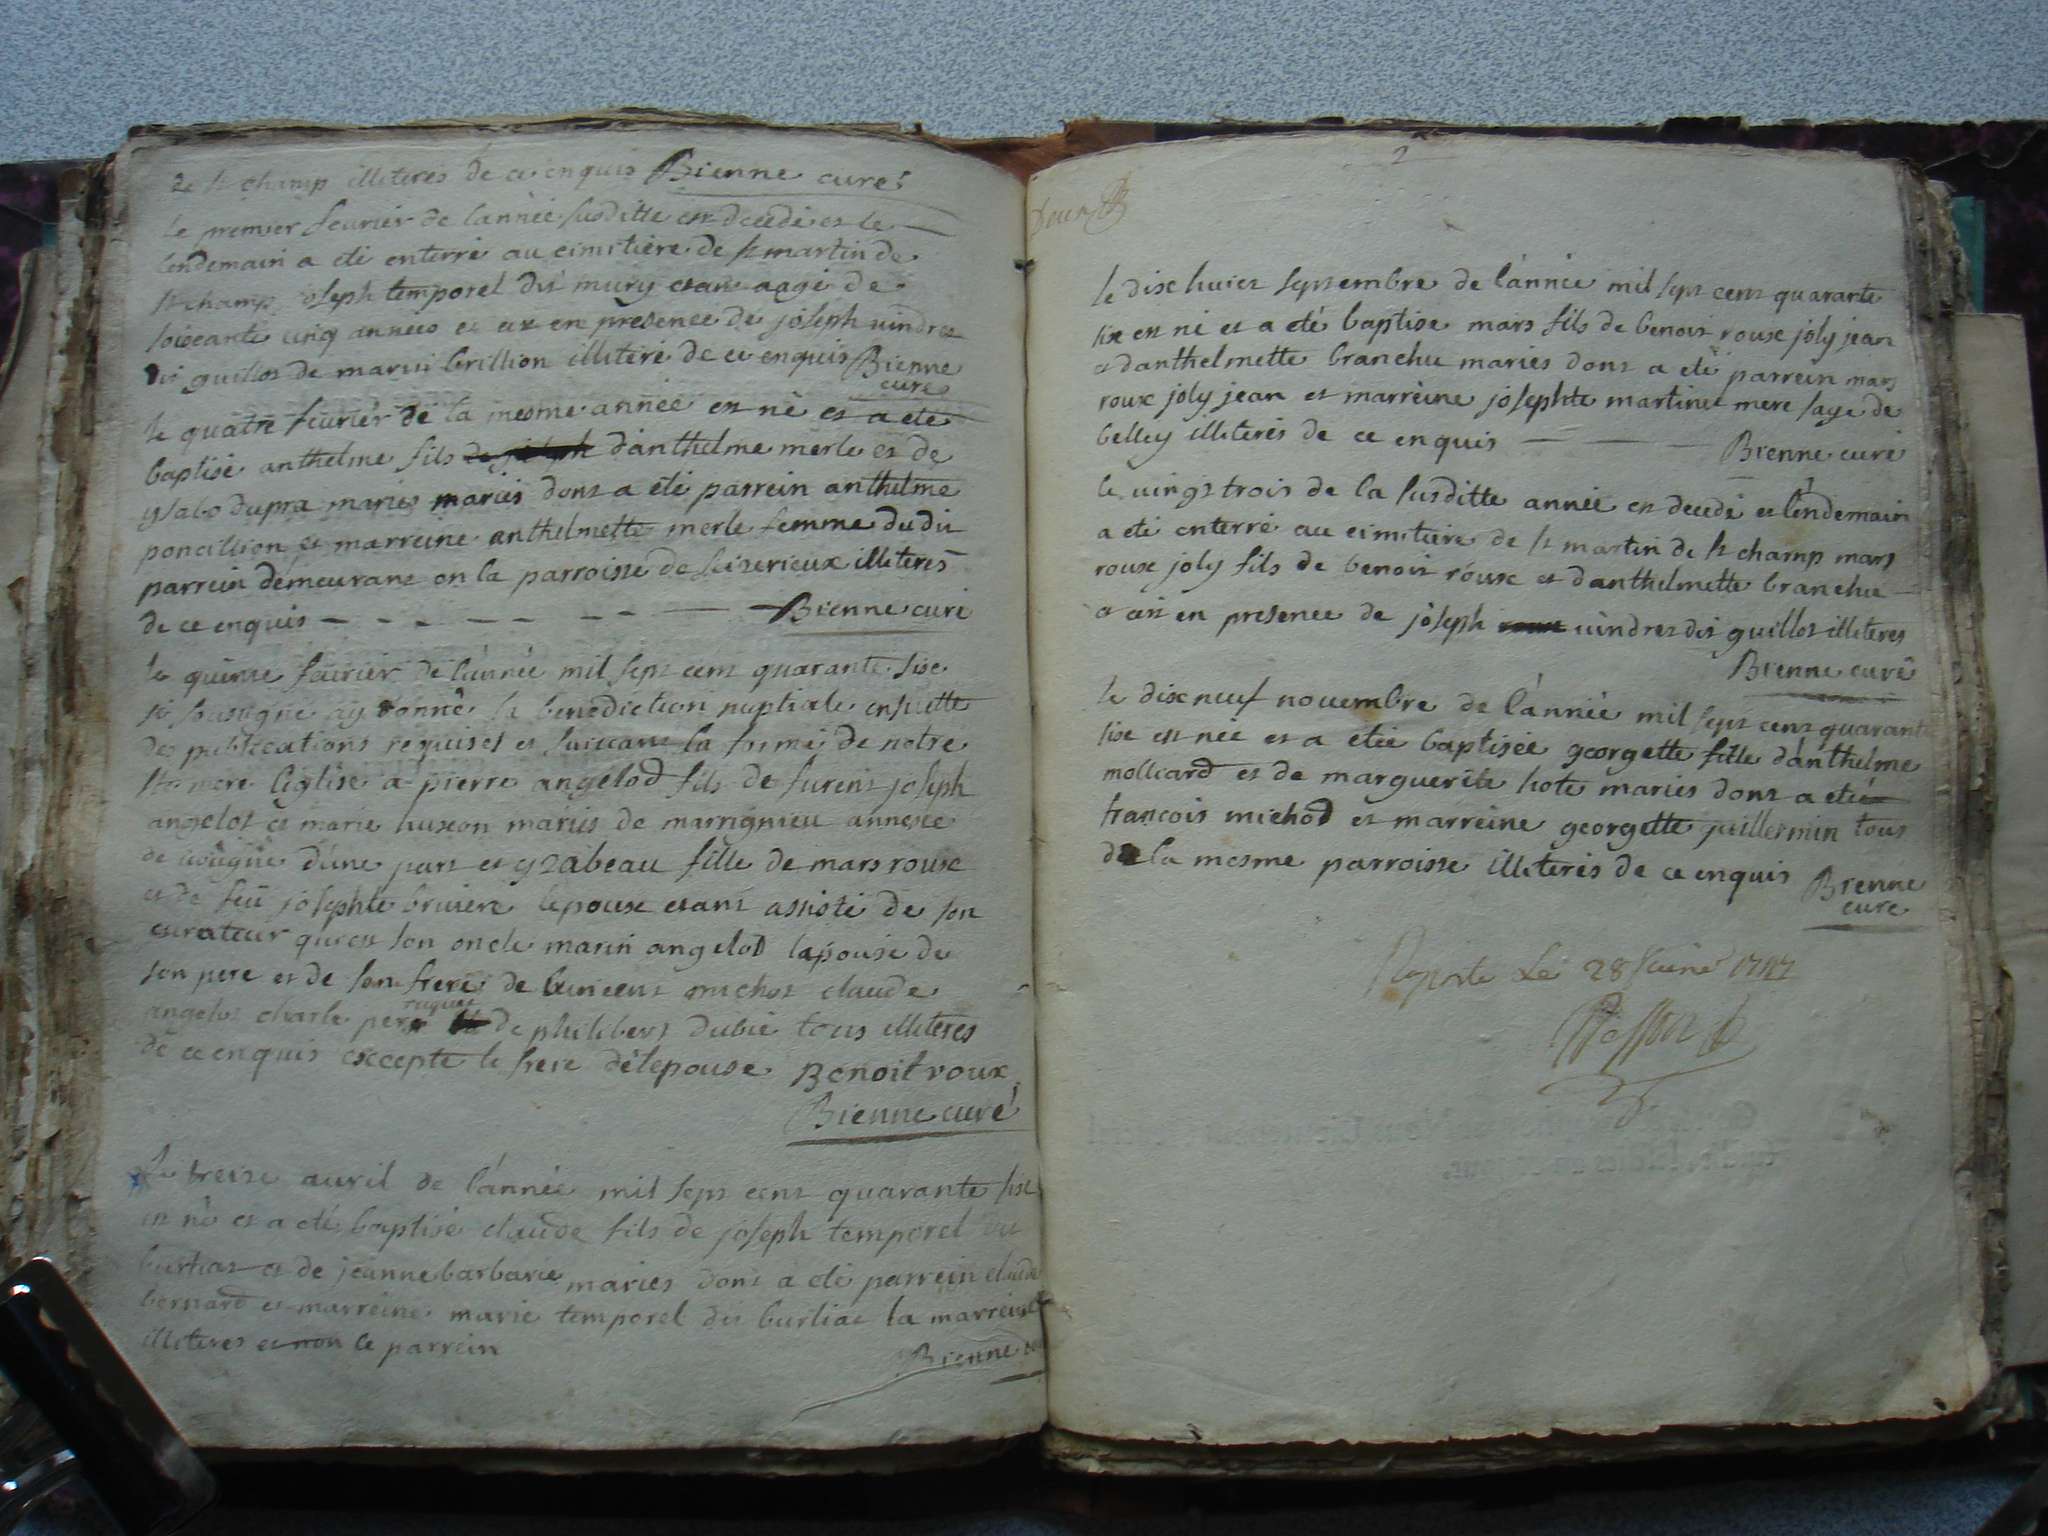 de st champ illiteres de ce enquis Bienne curé
le premier feurier de l'année susditte est decedé et le
lendemain a eté enterré au cimitiere de st martin de
st champ joseph temporel dit mury etant agé de
soiscante cinq années et ce en presence de joseph uindret
dit guillot de marin brillion illiteré de ce enquis Bienne
curé
le quatre feurier de la mesme année est né et a eté
baptisé anthelme fils de joseph d'anthelme merle et de
ysabo dupra mariés mariés dont a eté parrein anthelme
poncillion et marreine anthelmette merle femme du dit
parrein demeurant en la parroisse de seiserieux illiterés
de ce enquis Bienne curé
le quinse feurier de l'année mil sept cent quarante sise
je sousigné ay donné la benediction nuptiale ensuitte
des publications requises et suiuant la forme de notre
ste mere l'eglise a pierre angelod fils de furent joseph
angelot et marie huson mariés de marrignieu annexe
de d'une part et ysabeau fille de mars rouse
et de feü josephte bruiere l'epouse etant assisté de son
curateur qui est son oncle marin angelod l'apouse de
son pere et de son frere de uincent michot claude
angelot charle perr ruquet de philibert dubié tous illiterés
de ce enquis excepte le frere de l'epouse Benoit roux
Bienne curé
Le treise auril de l'année mil sept cent quarante sise
est né et a eté baptisé claude fils de joseph temporel dit
burliat et de jeanne barbarie mariés dont a eté parrein claude
bernard et marreine marie temporel dit burliat la marreine
illiteres et non le parrein
Bienne
2
Deux
le dise huict septembre de l'année mil sept cent quarante
sise est né et a eté baptisé mars fils de benoit rouse joly jean
et d'anthelmette branchu mariés dont a eté parrein mars
roux joly jean et marreine josephte martinet mere sage de
belley illiterés de ce enquis Bienne curé
le uingt trois de la susditte année est decedé et l'endemain
a eté enterré au cimitiere de st martin de st champ mars
rouse joly fils de benoit rouse et d'anthelmette branchu
et ce en presence de joseph roux uindret dit guillot illiteres
Bienne curé
le dise neuf nouembre de l'année mil sept cent quarante
sise est née et a etée baptisée georgette fille d'anthelme
mollard et de marguerite hote mariés dont a eté
francois michod et marreine georgette guillermin tous
de la mesme parroisse illiterés de ce enquis Bienne
curé
Le 28 1747